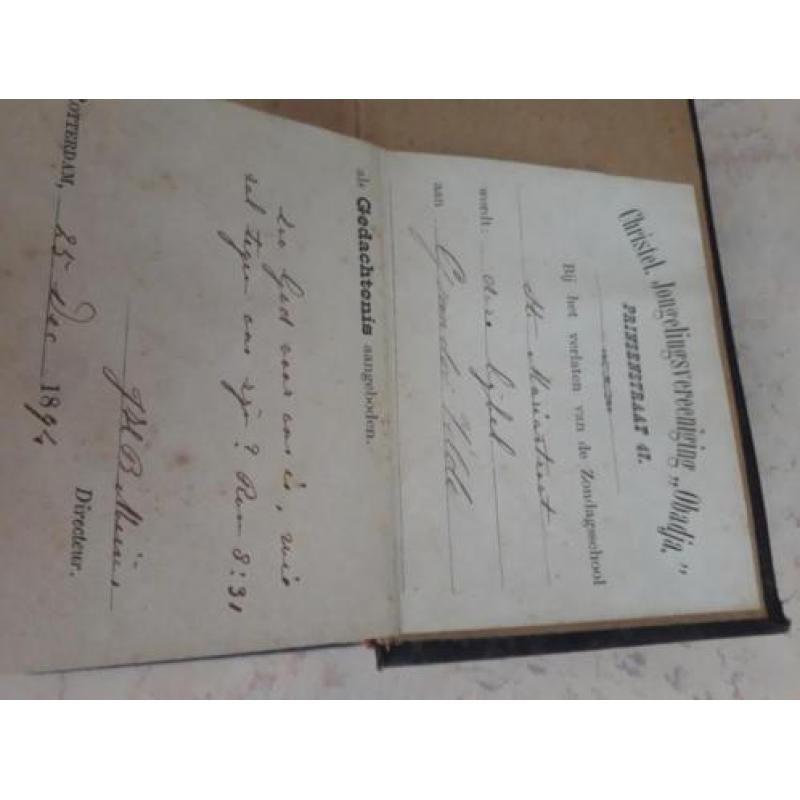 Christel. Jongelingsvereeniging „Obadja,”
PRINSENSTRAAT 47.
Bij het verlaten van de Zondagsschool
St. Mariastraat
wordt: deze bijbel
aan
als Gedachtenis aangeboden.
Zoo God voor ons is, wie
zal tegen ons zijn? Rom 8:31
Directeur.
ROTTERDAM, 25 Dec 1894